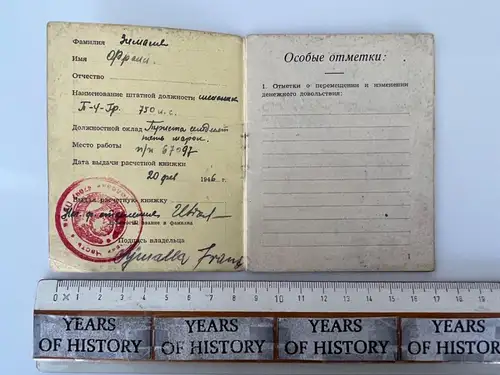 Фамилия Зималя
Имя Франц.
Отчество
Наименование штатной должности
П-4-Гр. 750 и.с.
Должностной оклад Триста семьдесят
пять марок.
Место работы п/п 67097
Дата выдачи расчетной книжки
20 фев 1946 г.
Выдал расчетную книжку
Нач. ф. отделения
звание и фамилия
Подпись владельца
Symalla Franz
Особые отметки:
1. Отметки о перемещении и изменении
денежного довольствия:
1
0 1 2 3 4 5 6 7 8 9 10 11 12 13 14 15 16 17 18 19
YEARS OF HISTORY
YEARS OF HISTORY
YEARS OF HISTORY
YEARS OF HISTORY